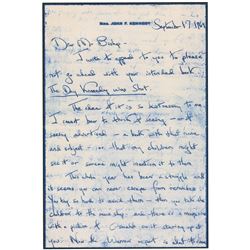 MRS. JOHN F. KENNEDY
September 17 1964
Dear Mr. Bishop -
I write to appeal to you to please
not go ahead with your intended book
The Day Kennedy was Shot.
The idea of it is so distressing to me
I cannot bear to think of seeing - or of
seeing advertised - a book with that name
and subject - or that my children might
see it or someone might mention it to them
This whole year has been a struggle and
it seems you can never escape from reminders
You try so hard to avoid them - then you take the
children to the news shop - and there is a magazine
with a picture of Oswald on it staring up at
you. Now the Warren report is